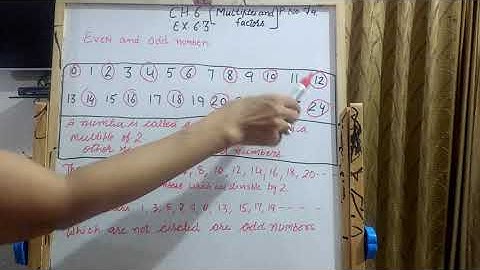 CH.6 [Multiples and factors] P No 79
EX 6.3
Even and odd number
0 1 2 3 4 5 6 7 8 9 10 11 12
13 14 15 16 17 18 19 20 24
A number is called a
multiple of 2
other numbers
The 8, 10, 12, 14, 16, 18, 20 --
numbers which are divisible by 2.
1, 3, 5, 13, 15, 17, 19 - - - -
which are not circled are odd numbers